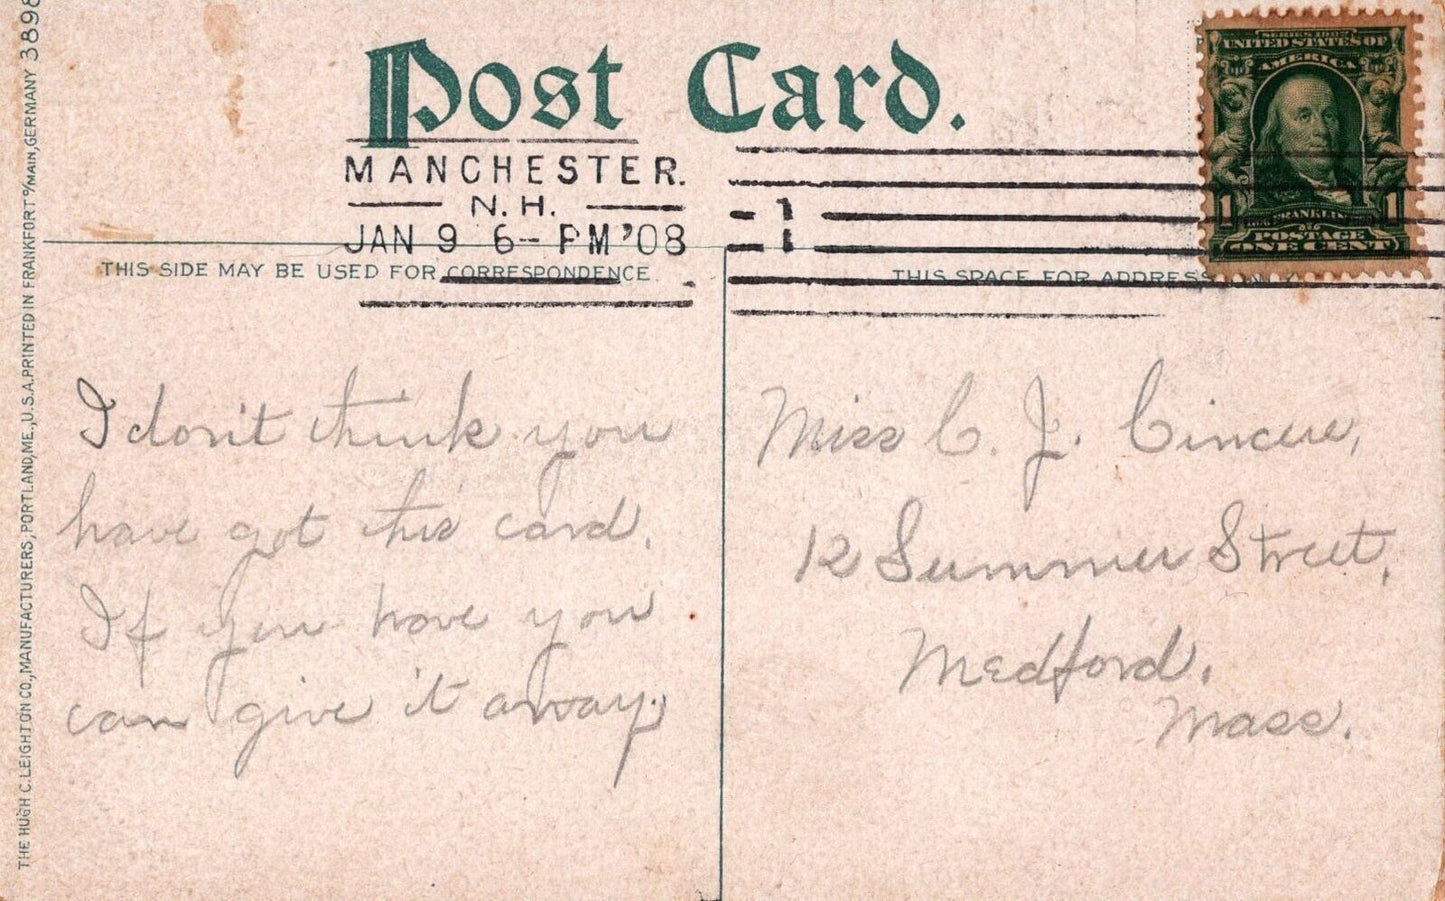 Post Card.
MANCHESTER.
N.H.
JAN 9 6- PM '08
1
SERIES 1902
UNITED STATES OF
AMERICA
1 1
FRANKLIN
POSTAGE
ONE CENT
THIS SIDE MAY BE USED FOR CORRESPONDENCE
THIS SPACE FOR ADDRESS
I don't think you
have got this card.
If you have you
can give it away.
Miss C. J.
12 Summer Street,
Medford,
Mass.
THE HUGH C. LEIGHTON CO., MANUFACTURERS, PORTLAND, ME., U.S.A. PRINTED IN FRANKFORT o/MAIN, GERMANY 3898